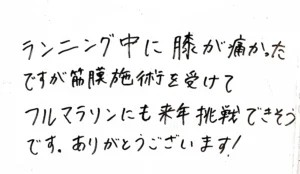 ランニング中に膝が痛かった
ですが筋膜施術を受けて
フルマラソンにも来年挑戦できそう
です。ありがとうございます!